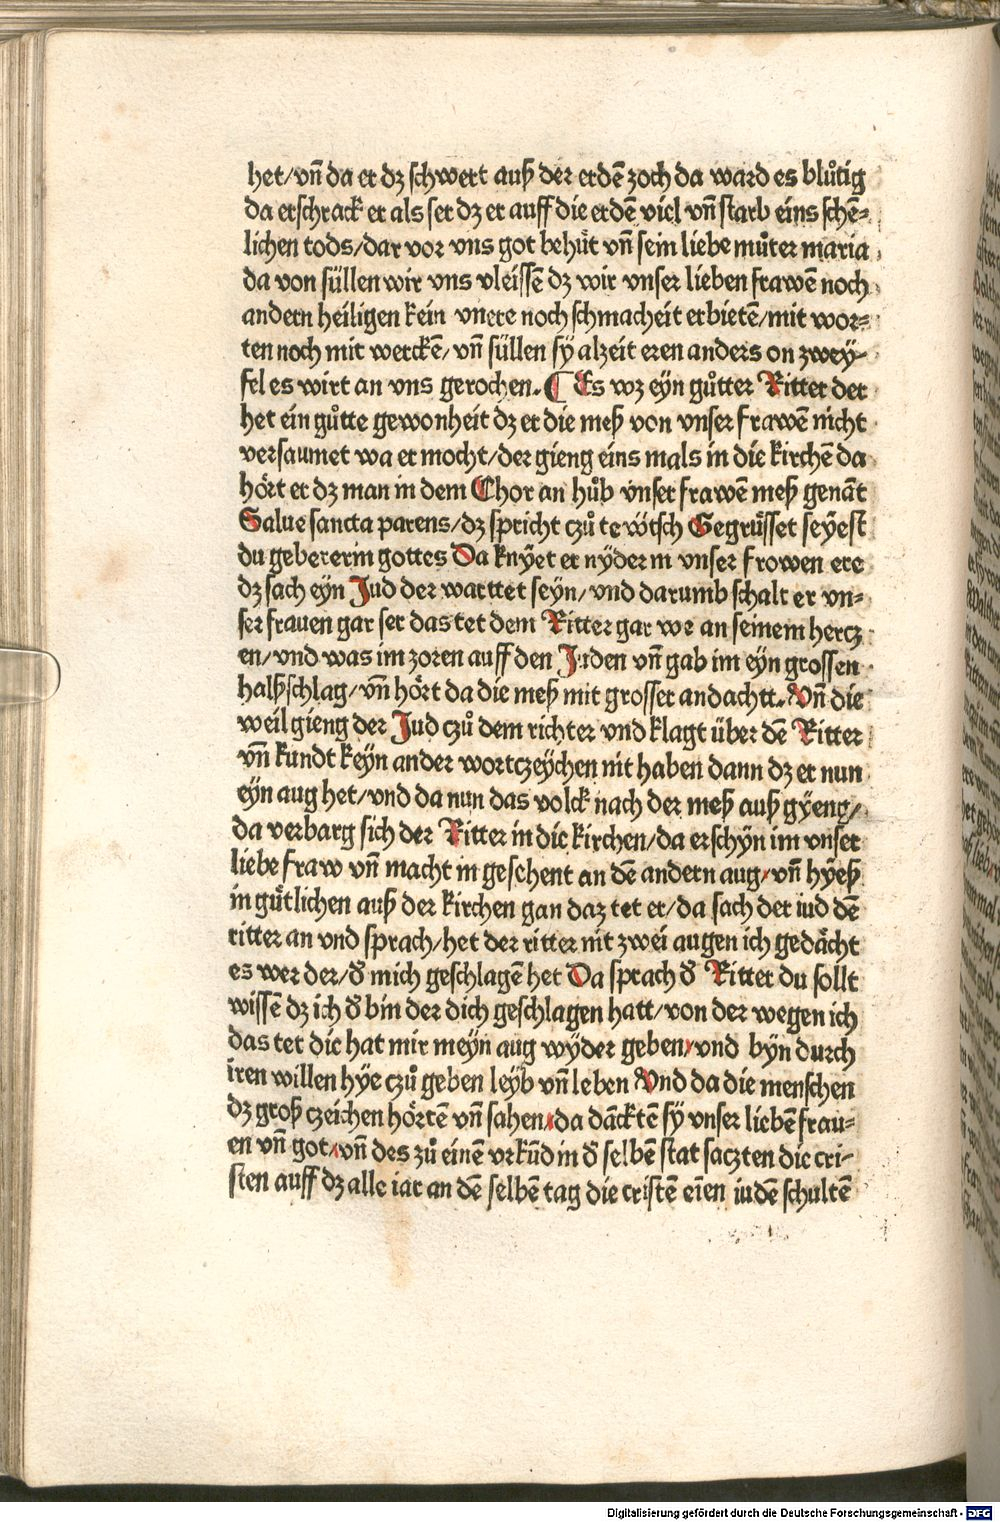 het/vn̄ da er dz schwert auß der erdē zoch da ward es blůtig
da erschrack er als ser dz er auff die erdē viel vn̄ starb eins schē=
lichen tods/dar vor vns got behuͤt vn̄ sein liebe můter maria
da von süllen wir vns vleissē dz wir vnser lieben frawē noch
andern heiligen kein vnere noch schmacheit erbietē/mit wor=
ten noch mit werckē/vn̄ süllen sÿ alzeit eren anders on zweÿ=
fel es wirt an vns gerochen. ¶ Es wz eÿn gůtter Ritter der
het ein gůtte gewonheit dz er die meß von vnser frawē nicht
versaumet wa er mocht/der gieng eins mals in die kirchē da
hoͤrt er dz man in dem Chor an hůb vnser frawē meß genāt
Salue sancta parens/dz spricht czů tewtsch Gegruͤsset seÿest
du gebererin gottes Da knÿet er nÿder in vnser frowen ere
dz sach eÿn Jud der warttet seÿn/vnd darumb schalt er vn=
ser frauen gar ser das tet dem Ritter gar we an seinem hercz
en/vnd was im zoren auff den Juden vn̄ gab im eÿn grossen
halßschlag/vn̄ hoͤrt da die meß mit grosser andachtt. Vn̄ die
weil gieng der Jud czů dem richter vnd klagt über dē Ritter
vn̄ kundt keÿn ander wortczeÿchen nit haben dann dz er nun
eÿn aug het/vnd da nun das volck nach der meß auß gÿeng/
da verbarg sich der Ritter in die kirchen/da erschÿn im vnser
liebe fraw vn̄ macht in gesehent an dē andern aug/vn̄ hÿeß
in guͤtlichen auß der kirchen gan daz tet er/da sach der iud dē
ritter an vnd sprach/het der ritter nit zwei augen ich gedaͤcht
es wer der/đ mich geschlagē het Da sprach đ Ritter du sollt
wissē dz ich đ bin der dich geschlagen hatt/von der wegen ich
das tet die hat mir meÿn aug wÿder geben/vnd bÿn durch
iren willen hÿe czů geben leÿb vn̄ leben Vnd da die menschen
dz groß czeichen hoͤrtē vn̄ sahen/da dācktē sÿ vnser liebē frau=
en vn̄ got/vn̄ des zů einē vrkūd in đ selbē stat saczten die cri=
sten auff dz alle iar an dē selbē tag die cristē eīen iudē schultē
Digitalisierung gefördert durch die Deutsche Forschungsgemeinschaft - DFG